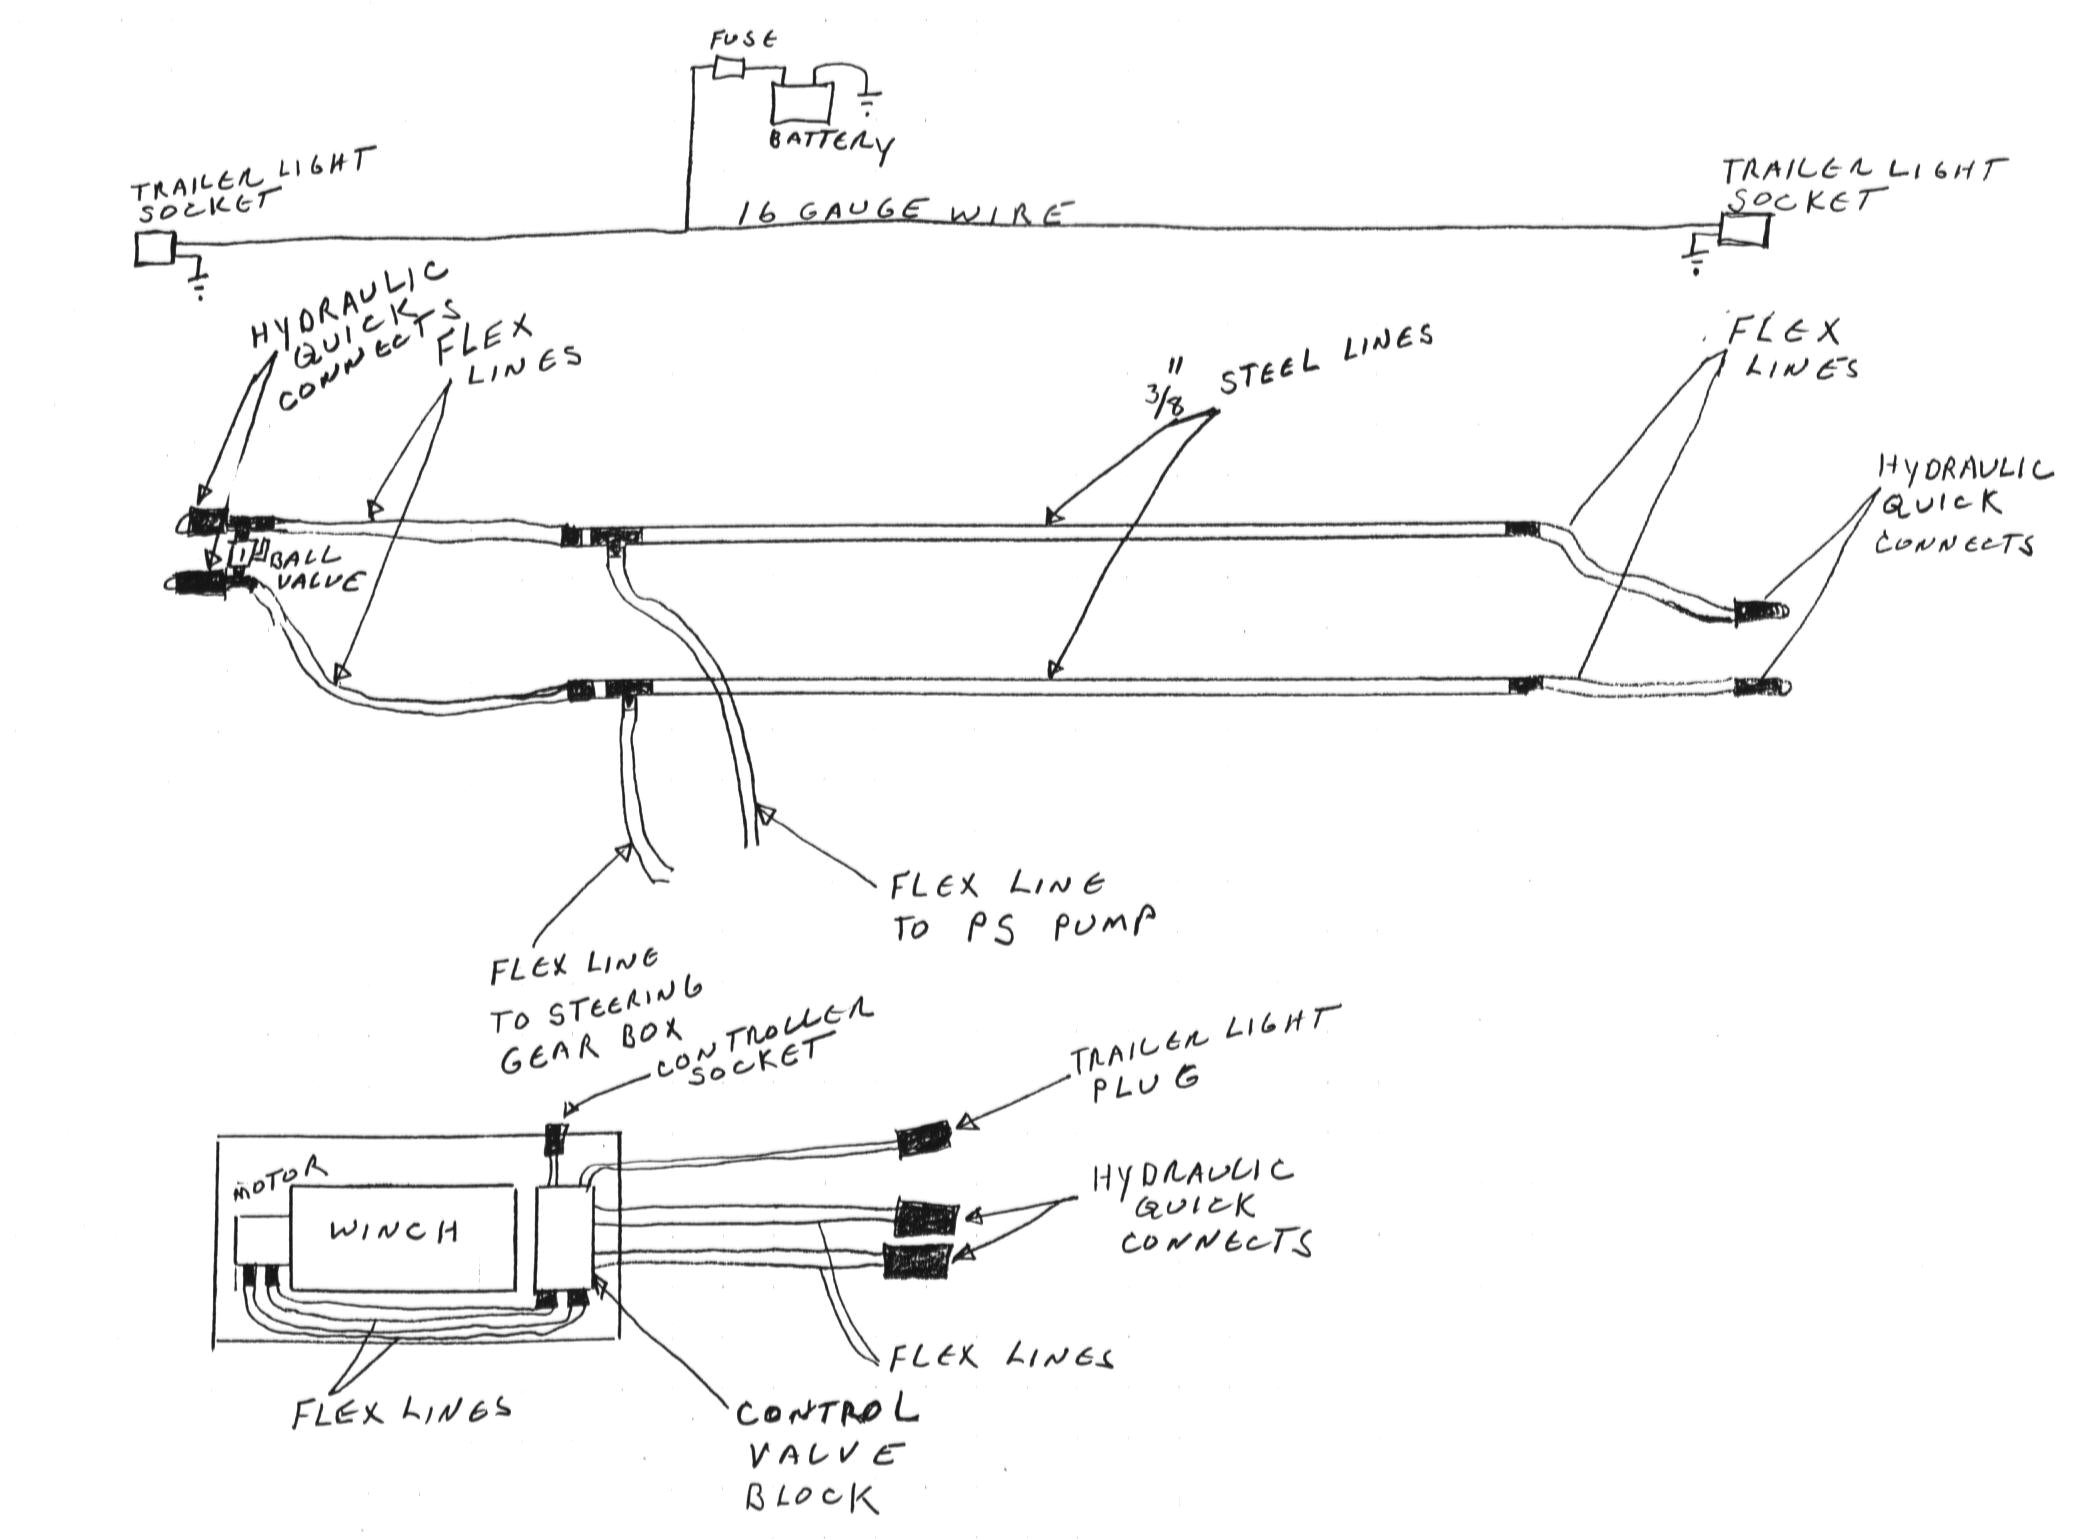 FUSE
BATTERY
TRAILER LIGHT
SOCKET
16 GAUGE WIRE
TRAILER LIGHT
SOCKET
HYDRAULIC
QUICK
CONNECTS
FLEX
LINES
3/8" STEEL LINES
FLEX
LINES
HYDRAULIC
QUICK
CONNECTS
BALL
VALVE
FLEX LINE
TO PS PUMP
FLEX LINE
TO STEERING
GEAR BOX
CONTROLLER
SOCKET
TRAILER LIGHT
PLUG
MOTOR
WINCH
HYDRAULIC
QUICK
CONNECTS
FLEX LINES
FLEX LINES
CONTROL
VALVE
BLOCK